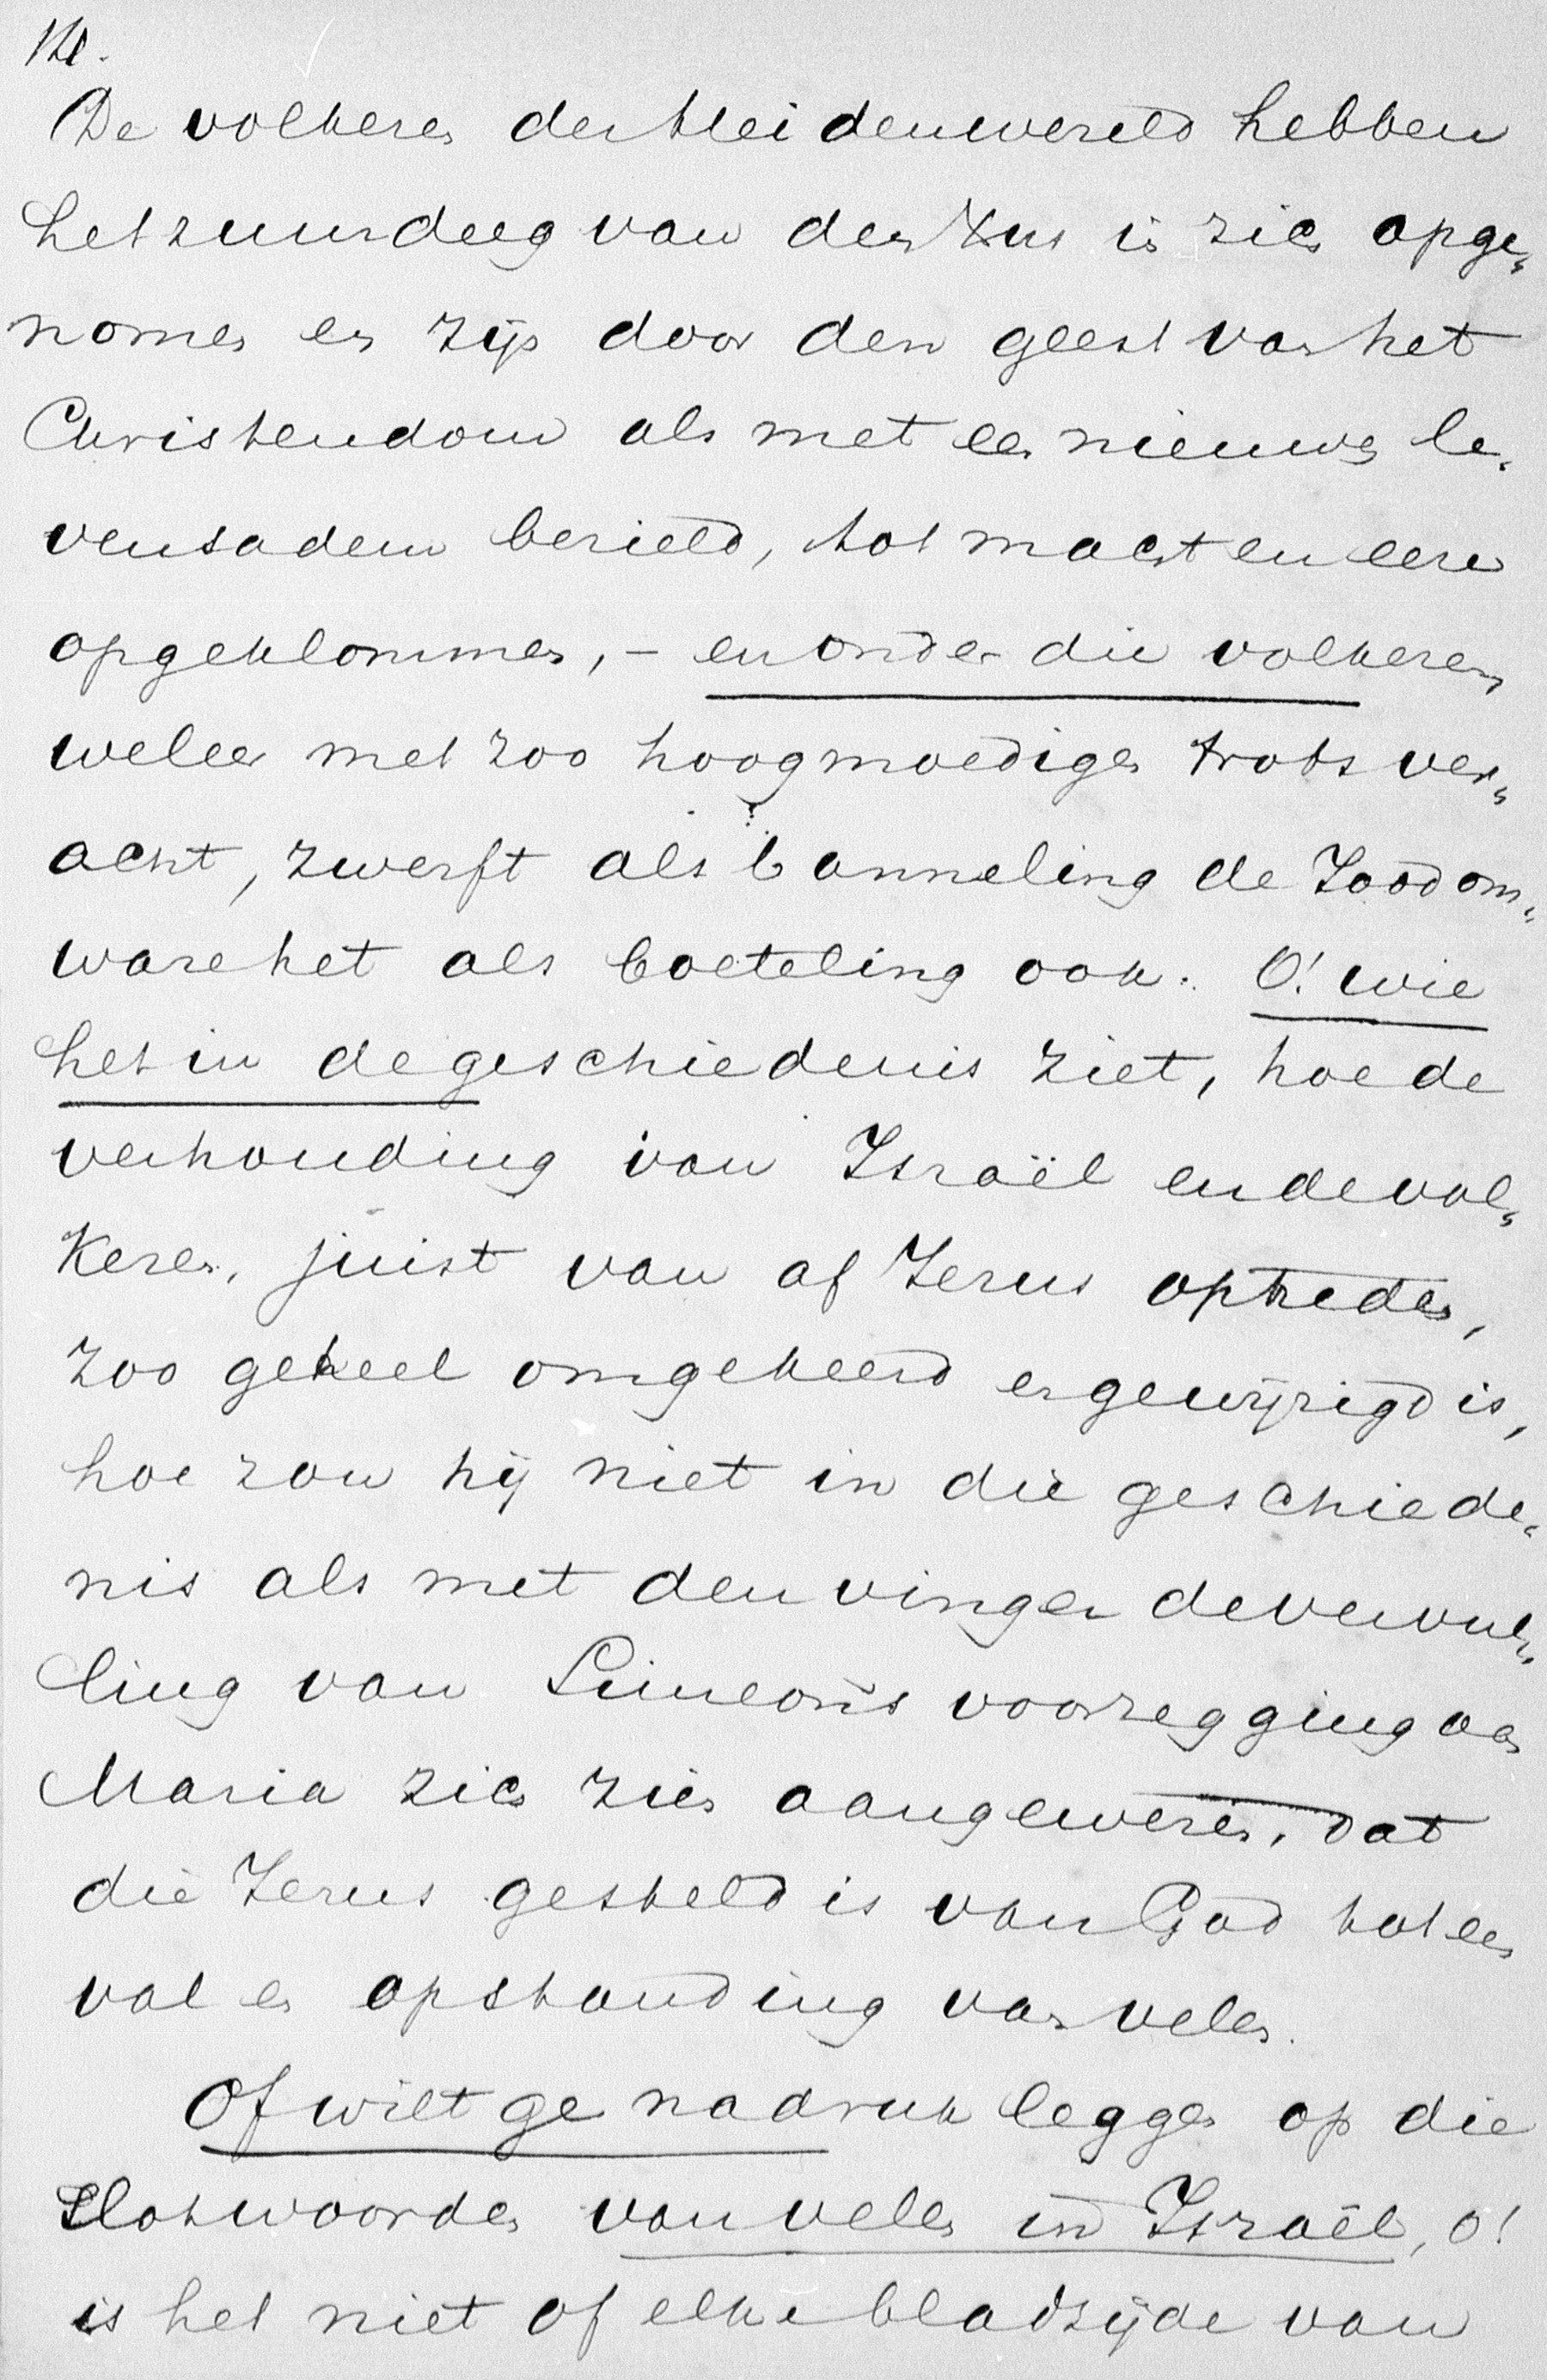 De volkeren der Heidenwereld hebben
het zuurdeeg van den Xus in zich opge„
nomen en zijn door den geest van het
Christendom als met een nieuwen le„
vensadem bezield, tot macht en eere
opgeklommen, – en onder die volkeren
weleer met zoo hoogmoedigen trots ver„
acht, zwerft als banneling de Jood om„
ware het als boeteling ook. O! wie
het in de geschiedenis ziet, hoe de
verhouding van Israël en de vol„
keren, juist van af Jezus optreden,
zoo geheel omgekeerd en gewijzigd is,
hoe zou hij niet in die geschiede„
nis als met den vinger de vervul„
ling van Simeon's voorzegging aan
Maria zich zien aangewezen, dat
die Jezus gesteld is van God tot een
val en opstanding van velen.
Of wilt ge nadruk leggen op die
slotwoorden van velen in Israël, o!
is het niet of elke bladzijde van